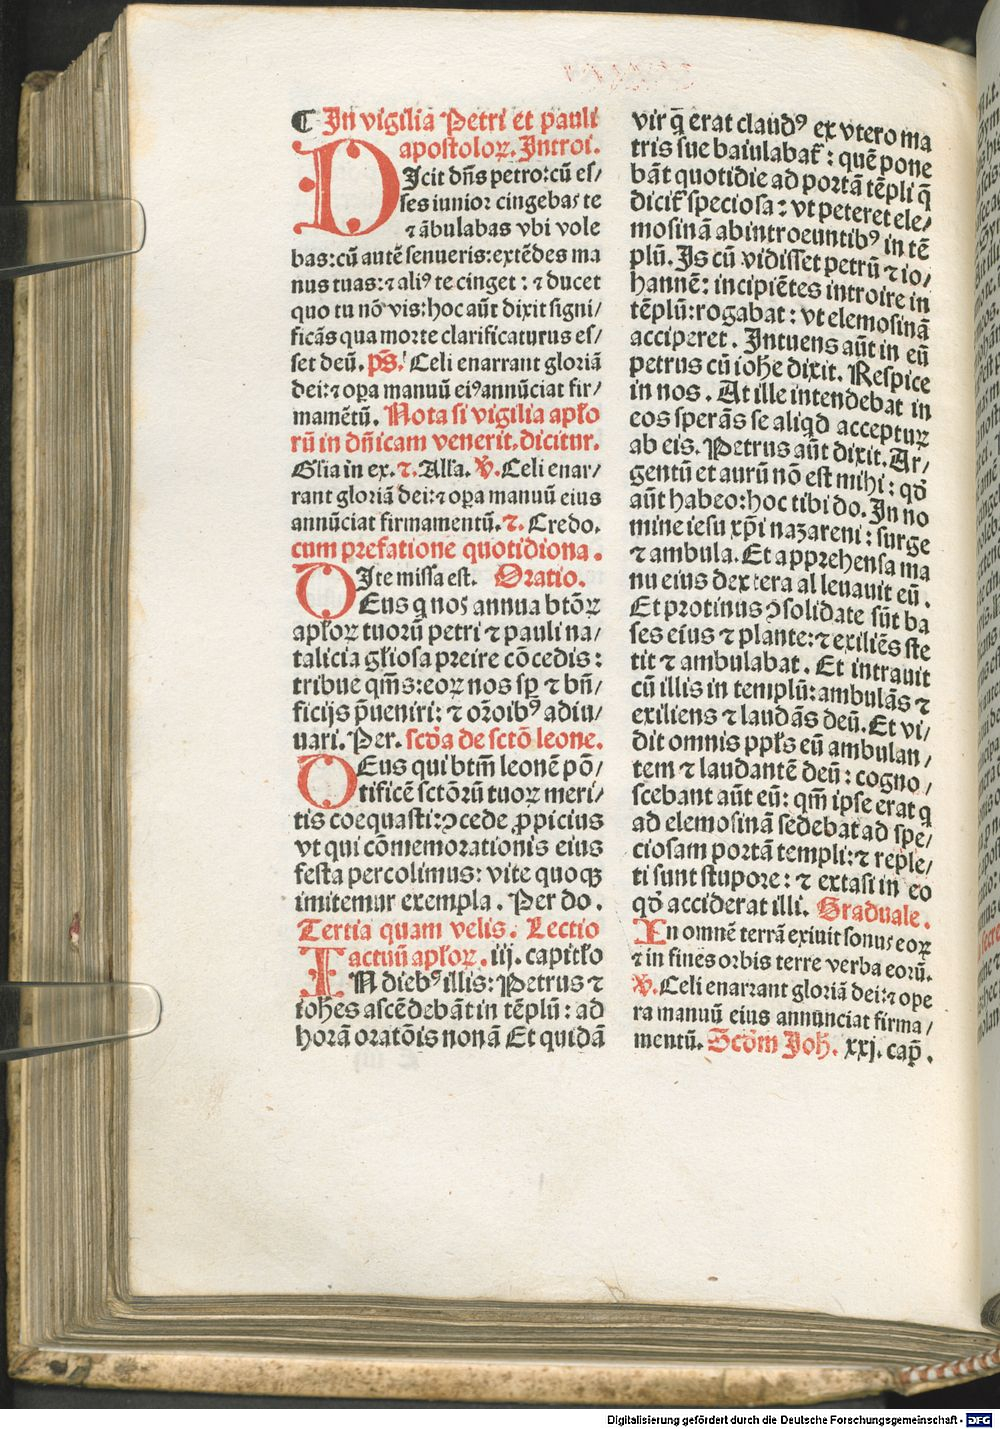 ¶ In vigilia Petri et pauli
apostoloꝝ. Introi.
DIcit dn̄s petro: cū es/
ses iunior cingebas te
⁊ ābulabas vbi vole
bas: cū autē senueris: extēdes ma
nus tuas: ⁊ aliꝰ te cinget: ⁊ ducet
quo tu nō vis: hoc aūt dixit signi/
ficās qua morte clarificaturus es/
set deū. p̄s. Celi enarrant gloriā
dei: ⁊ oꝑa manuū eiꝰ annūciat fir/
mamētū. Nota si vigilia apło
rū in dn̄icam venerit. dicitur.
Glīa in ex. ⁊. Alła. ℣. Celi enar/
rant gloriā dei: ⁊ oꝑa manuū eius
annūciat firmamentū. ⁊. Credo.
cum prefatione quotidiona.
Ite missa est. Oratio.
DEus q̄ nos annua btōꝝ
apłoꝝ tuorū petri ⁊ pauli na/
talicia głiosa preire cōcedis:
tribue qm̄s: eoꝝ nos sꝑ ⁊ bn̄/
ficijs p̄ueniri: ⁊ or̄oibꝰ adiu/
uari. Per. scd̄a de sctō leone.
DEus qui btm̄ leonē pō/
tificē sctōrū tuoꝝ meri/
tis coequasti: ꝯcede ꝓpicius
vt qui cōmemorationis eius
festa percolimus: vite quoqꝫ
imitemur exempla. Per do.
Tertia quam velis. Lectio
actuū apłoꝝ. iij. capitło
IN diebꝰ illis: Petrus ⁊
iohēs ascēdebāt in tēplū: ad
horā oratōis nonā Et quidā
vir q̄ erat claudꝰ ex vtero ma
tris sue baiulabat̄: quē pone
bāt quotidie ad portā tēpli q̄
dicit̄ speciosa: vt peteret ele/
mosinā ab introeuntibꝰ in tē
plū. Is cū vidisset petrū ⁊ io/
hannē: incipiētes introire in
tēplū: rogabat: vt elemosinā
acciperet. Intuens aūt in eū
petrus cū iohe dixit. Respice
in nos. At ille intendebat in
eos sperās se aliqd acceptuꝝ
ab eis. Petrus aūt dixit. Ar/
gentū et aurū nō est mihi: qd̄
aūt habeo: hoc tibi do. In no
mine iesu xp̄i nazareni: surge
⁊ ambula. Et apprehensa ma
nu eius dextera alleuauit eū.
Et protinus ꝯsolidate sūt ba
ses eius ⁊ plante: ⁊ exiliēs ste
tit ⁊ ambulabat. Et intrauit
cū illis in templū: ambulās ⁊
exiliens ⁊ laudās deū. Et vi/
dit omnis ppłs eū ambulan/
tem ⁊ laudantē deū: cogno/
scebant aūt eū: qm̄ ipse erat q̄
ad elemosinā sedebat ad spe/
ciosam portā templi: ⁊ reple/
ti sunt stupore: ⁊ extasi in eo
qd̄ acciderat illi. Graduale.
In omnē terrā exiuit sonus eoꝝ
⁊ in fines orbis terre verba eorū.
℣. Celi enarrant gloriā dei: ⁊ ope
ra manuū eius annunciat firma/
mentū. Scd̄m Joh̄. xxj. cap̄.
Digitalisierung gefördert durch die Deutsche Forschungsgemeinschaft - DFG